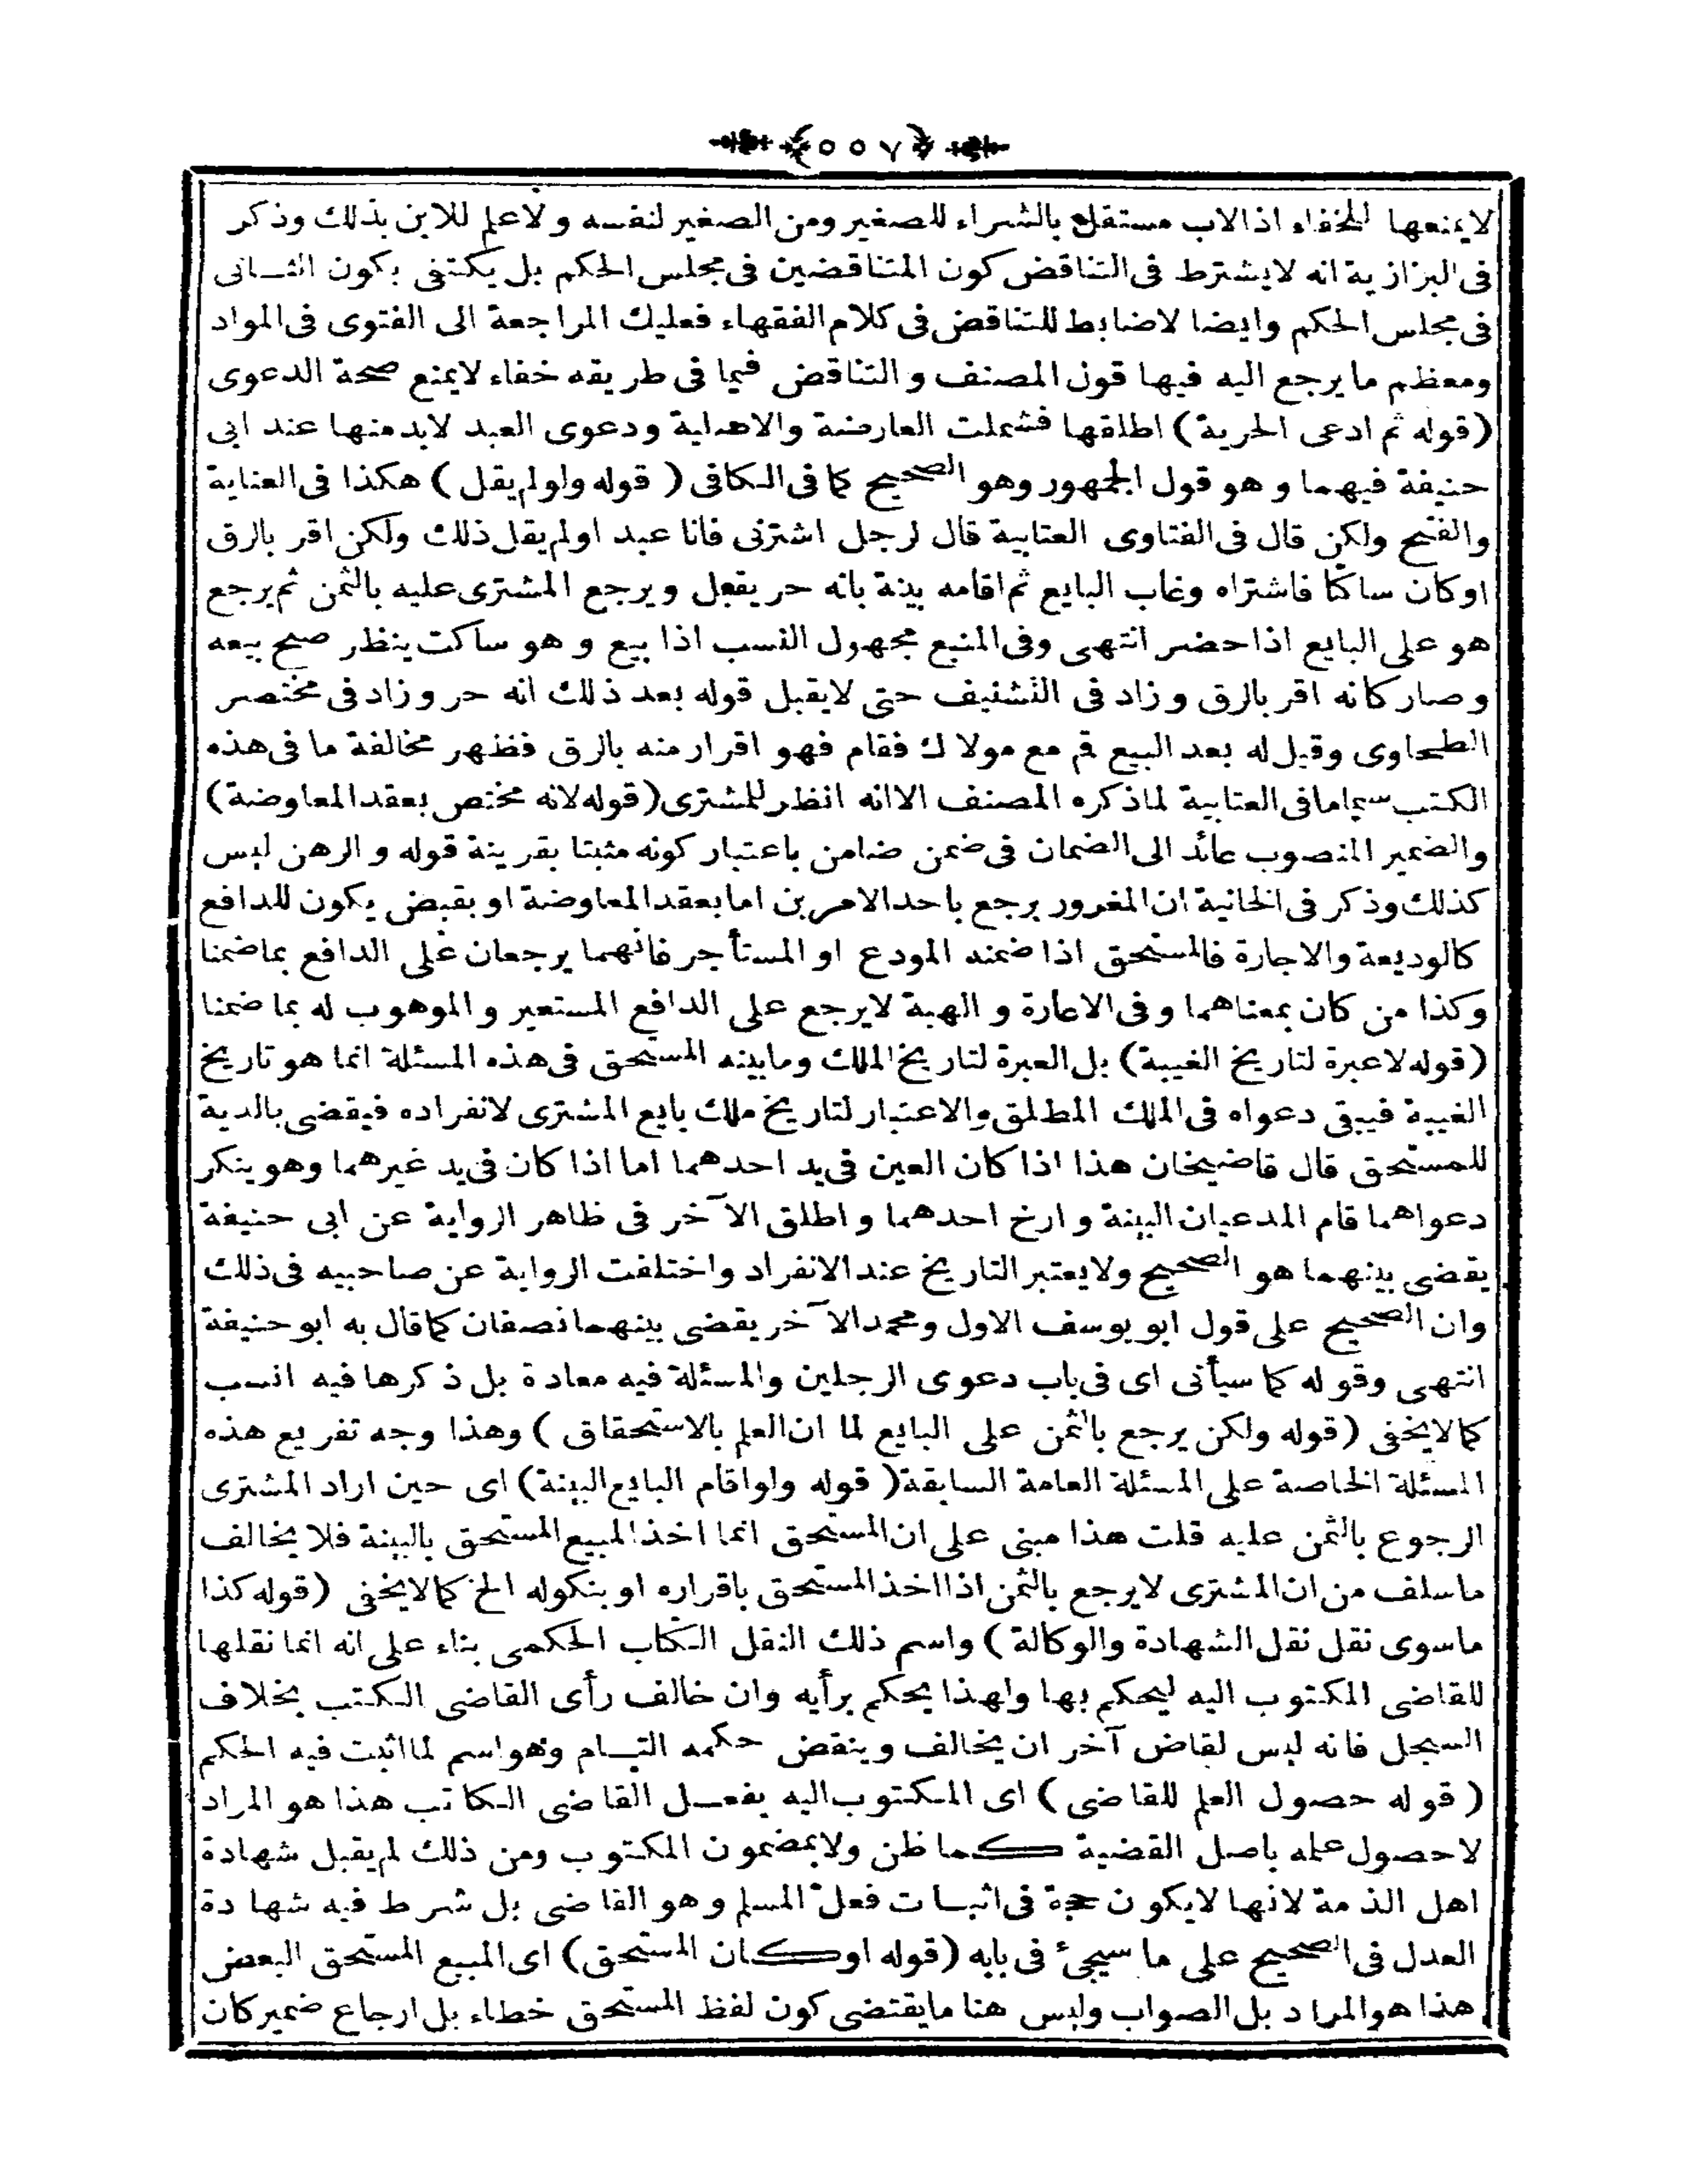 ٥٥٧
لايمنعها للخفاء اذ الاب مستقل بالشراء للصغير ومن الصغير لنفسه ولاعلم للابن بذلك وذكر
فى البزازية انه لايشترط فى التناقض كون المتناقضين فى مجلس الحكم بل يكتفى بكون الثانى
فى مجلس الحكم وايضا لاضابط للتناقض فى كلام الفقهاء فعليك المراجعة الى الفتوى فى المواد
ومعظم ما يرجع اليه فيها قول المصنف والتناقض فيما فى طريقه خفاء لايمنع صحة الدعوى
(قوله ثم ادعى الحرية) اطلقها فشملت العارضة والاصلية ودعوى العبد لابد منها عند ابى
حنيفة فيهما وهو قول الجمهور وهو الصحيح كما فى الكافى (قوله ولو لم يقل) هكذا فى العناية
والفتح ولكن قال فى الفتاوى العتابية قال لرجل اشترنى فانا عبد او لم يقل ذلك ولكن اقر بالرق
او كان ساكتا فاشتراه وغاب البايع ثم اقامه بينة بانه حر يقبل ويرجع المشترى عليه بالثمن ثم يرجع
هو على البايع اذا حضر انتهى وفى المنبع مجهول النسب اذا بيع وهو ساكت ينظر صح بيعه
وصار كانه اقر بالرق وزاد فى التشنيف حتى لايقبل قوله بعد ذلك انه حر وزاد فى مختصر
الطحاوى وقيل له بعد البيع قم مع مولاك فقام فهو اقرار منه بالرق فظهر مخالفة ما فى هذه
الكتب سيما ما فى العتابية لما ذكره المصنف الا انه انظر للمشترى (قوله لانه مختص بعقد المعاوضة)
والضمير المنصوب عائد الى الضمان فى ضمن ضامن باعتبار كونه مثبتا بقرينة قوله والرهن ليس
كذلك وذكر فى الخانية ان المغرور يرجع باحد الامرين اما بعقد المعاوضة او بقبض يكون للدافع
كالوديعة والاجارة فالمستحق اذا ضمنه المودع او المستأجر فانهما يرجعان على الدافع بما ضمنا
وكذا من كان بمعناهما وفى الاعارة والهبة لايرجع على الدافع المستعير والموهوب له بما ضمنا
(قوله لاعبرة لتاريخ الغيبة) بل العبرة لتاريخ الملك وما بينه المستحق فى هذه المسئلة انما هو تاريخ
الغيبة فيبقى دعواه فى الملك المطلق والاعتبار لتاريخ ملك بايع المشترى لانفراده فيقضى بالدية
للمستحق قال قاضيخان هذا اذا كان العين فى يد احدهما اما اذا كان فى يد غيرهما وهو ينكر
دعواهما قام المدعيان البينة وارخ احدهما واطلق الآخر فى ظاهر الرواية عن ابى حنيفة
يقضى بينهما هو الصحيح ولايعتبر التاريخ عند الانفراد واختلفت الرواية عن صاحبيه فى ذلك
وان الصحيح على قول ابو يوسف الاول ومحمد الآخر يقضى بينهما نصفان كما قال به ابو حنيفة
انتهى وقوله كما سيأتى اى فى باب دعوى الرجلين والمسئلة فيه معادة بل ذكرها فيه انسب
كما لايخفى (قوله ولكن يرجع بالثمن على البايع لما ان العلم بالاستحقاق) وهذا وجه تفريع هذه
المسئلة الخاصة على المسئلة العامة السابقة (قوله ولو اقام البايع البينة) اى حين اراد المشترى
الرجوع بالثمن عليه قلت هذا مبنى على ان المستحق انما اخذ المبيع المستحق بالبينة فلا يخالف
ما سلف من ان المشترى لايرجع بالثمن اذا اخذ المستحق باقراره او بنكوله الخ كما لايخفى (قوله كذا
ما سوى نقل نقل الشهادة والوكالة) واسم ذلك النقل الكتاب الحكمى بناء على انه انما نقلها
للقاضى المكتوب اليه ليحكم بها ولهذا يحكم برأيه وان خالف رأى القاضى الكتب بخلاف
السجل فانه ليس لقاض آخر ان يخالف وينقض حكمه التام وهو اسم لما اثبت فيه الحكم
(قوله حصول العلم للقاضى) اى المكتوب اليه بفعل القاضى الكاتب هذا هو المراد
لاحصول علمه باصل القضية كما ظن ولا بمضمون المكتوب ومن ذلك لم يقبل شهادة
اهل الذمة لانها لايكون حجة فى اثبات فعل المسلم وهو القاضى بل شرط فيه شهادة
العدل فى الصحيح على ما سيجئ فى بابه (قوله او كان المستحق) اى المبيع المستحق البعض
هذا هو المراد بل الصواب وليس هنا ما يقتضى كون لفظ المستحق خطاء بل ارجاع ضمير كان